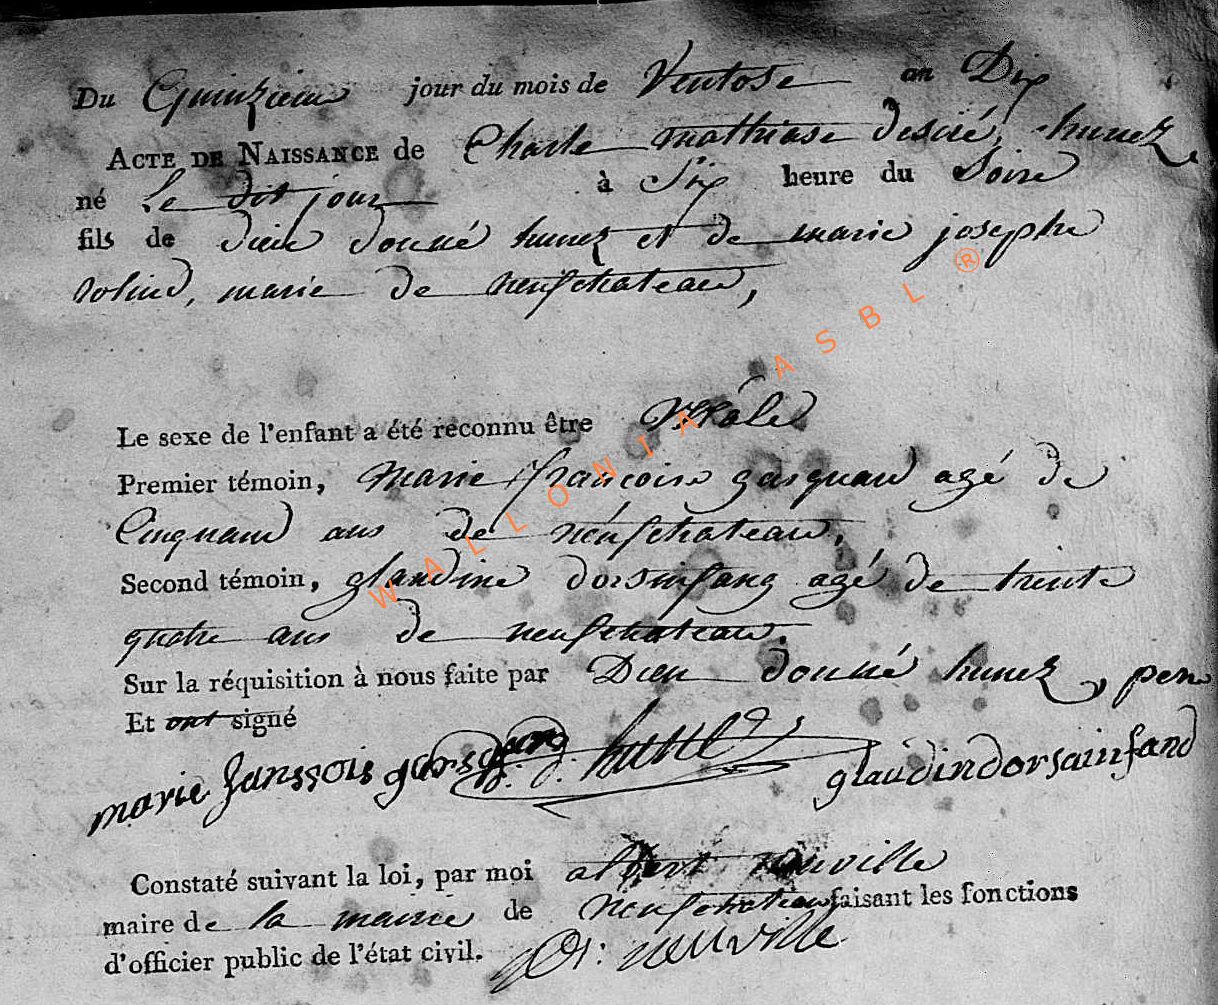 Du Quinzieme jour du mois de Ventose an Dix
ACTE DE NAISSANCE de Charle mathiase desiré, hunez
né Le dit jour à Six heure du Soire
fils de dieu donné hunez et de marie josephe
mariée de neufchateau,
Le sexe de l'enfant a été reconnu être Mâle
Premier témoin, Marie françoise gasquard agé de
Cinquand ans de neufchateau,
Second témoin, glaudine dorsinfang agé de trente
quatre ans de neufchateau.
Sur la réquisition à nous faite par Dieu donné hunez, pere
Et ont signé
marie franssois d. hunez glaudindorsainfand
Constaté suivant la loi, par moi albert neuville
maire de la mairie de Neufchateau faisant les fonctions
d'officier public de l'état civil. neuville
WALLONIA ASBL ®